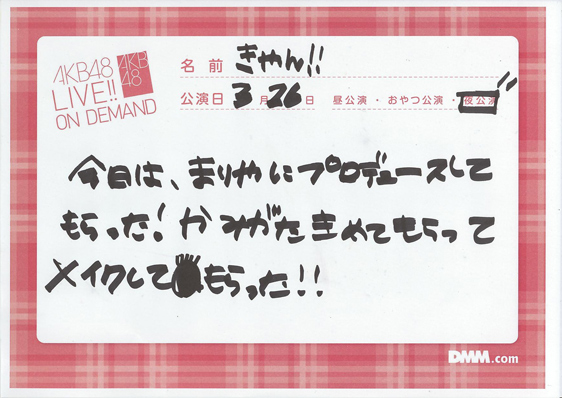 AKB48
LIVE!!
ON DEMAND
AKB
48
名前 きやん!!
公演日 3月26日 昼公演・おやつ公演・夜公演
今日は、まりやにプロデュースして
もらった! かみがたきめてもらって
メイクしてもらった!!
DMM.com